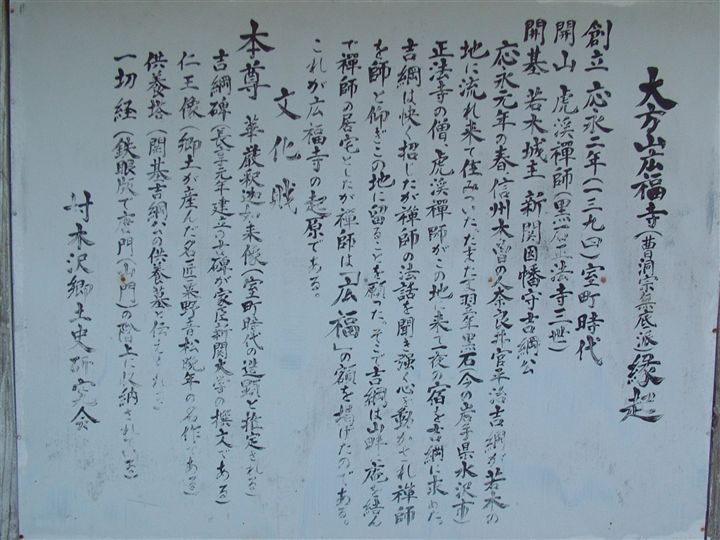 大方山広福寺(曹洞宗無底派)縁起
創立 応永二年(一三九四)室町時代
開山 虎渓禅師(黒石正法寺三世)
開基 若木城主 新関因幡守吉綱公
応永元年の春、信州木曽の人奈良井官平治吉綱が若木の
地に流れ来て住みついた。たまたま翌年黒石(今の岩手県水沢市)
正法寺の僧、虎渓禅師がこの地へ来て夜の宿を吉綱に求めた。
吉綱は快く招じたが禅師の法話を聞き強く心を動かされ禅師
を師と仰ぎこの地に留ることを願た。そこで吉綱は山畔に庵を結ん
で禅師の居宅としたが禅師は「広福」の額を掲げたのである。
これが広福寺の起原である。
文化財
本尊 華厳釈迦如来像(室町時代の造顕と推定される)
吉綱碑(長享元年建立の古碑が家臣新関大学の撰文である)
仁王像(郷土が産んだ名匠 野吉松晩年の名作である)
供養塔(開基吉綱公の供養墓と伝えられる)
一切経(鉄眼版で唐門(山門)の階上に収納されている)
村木沢郷土史研究会